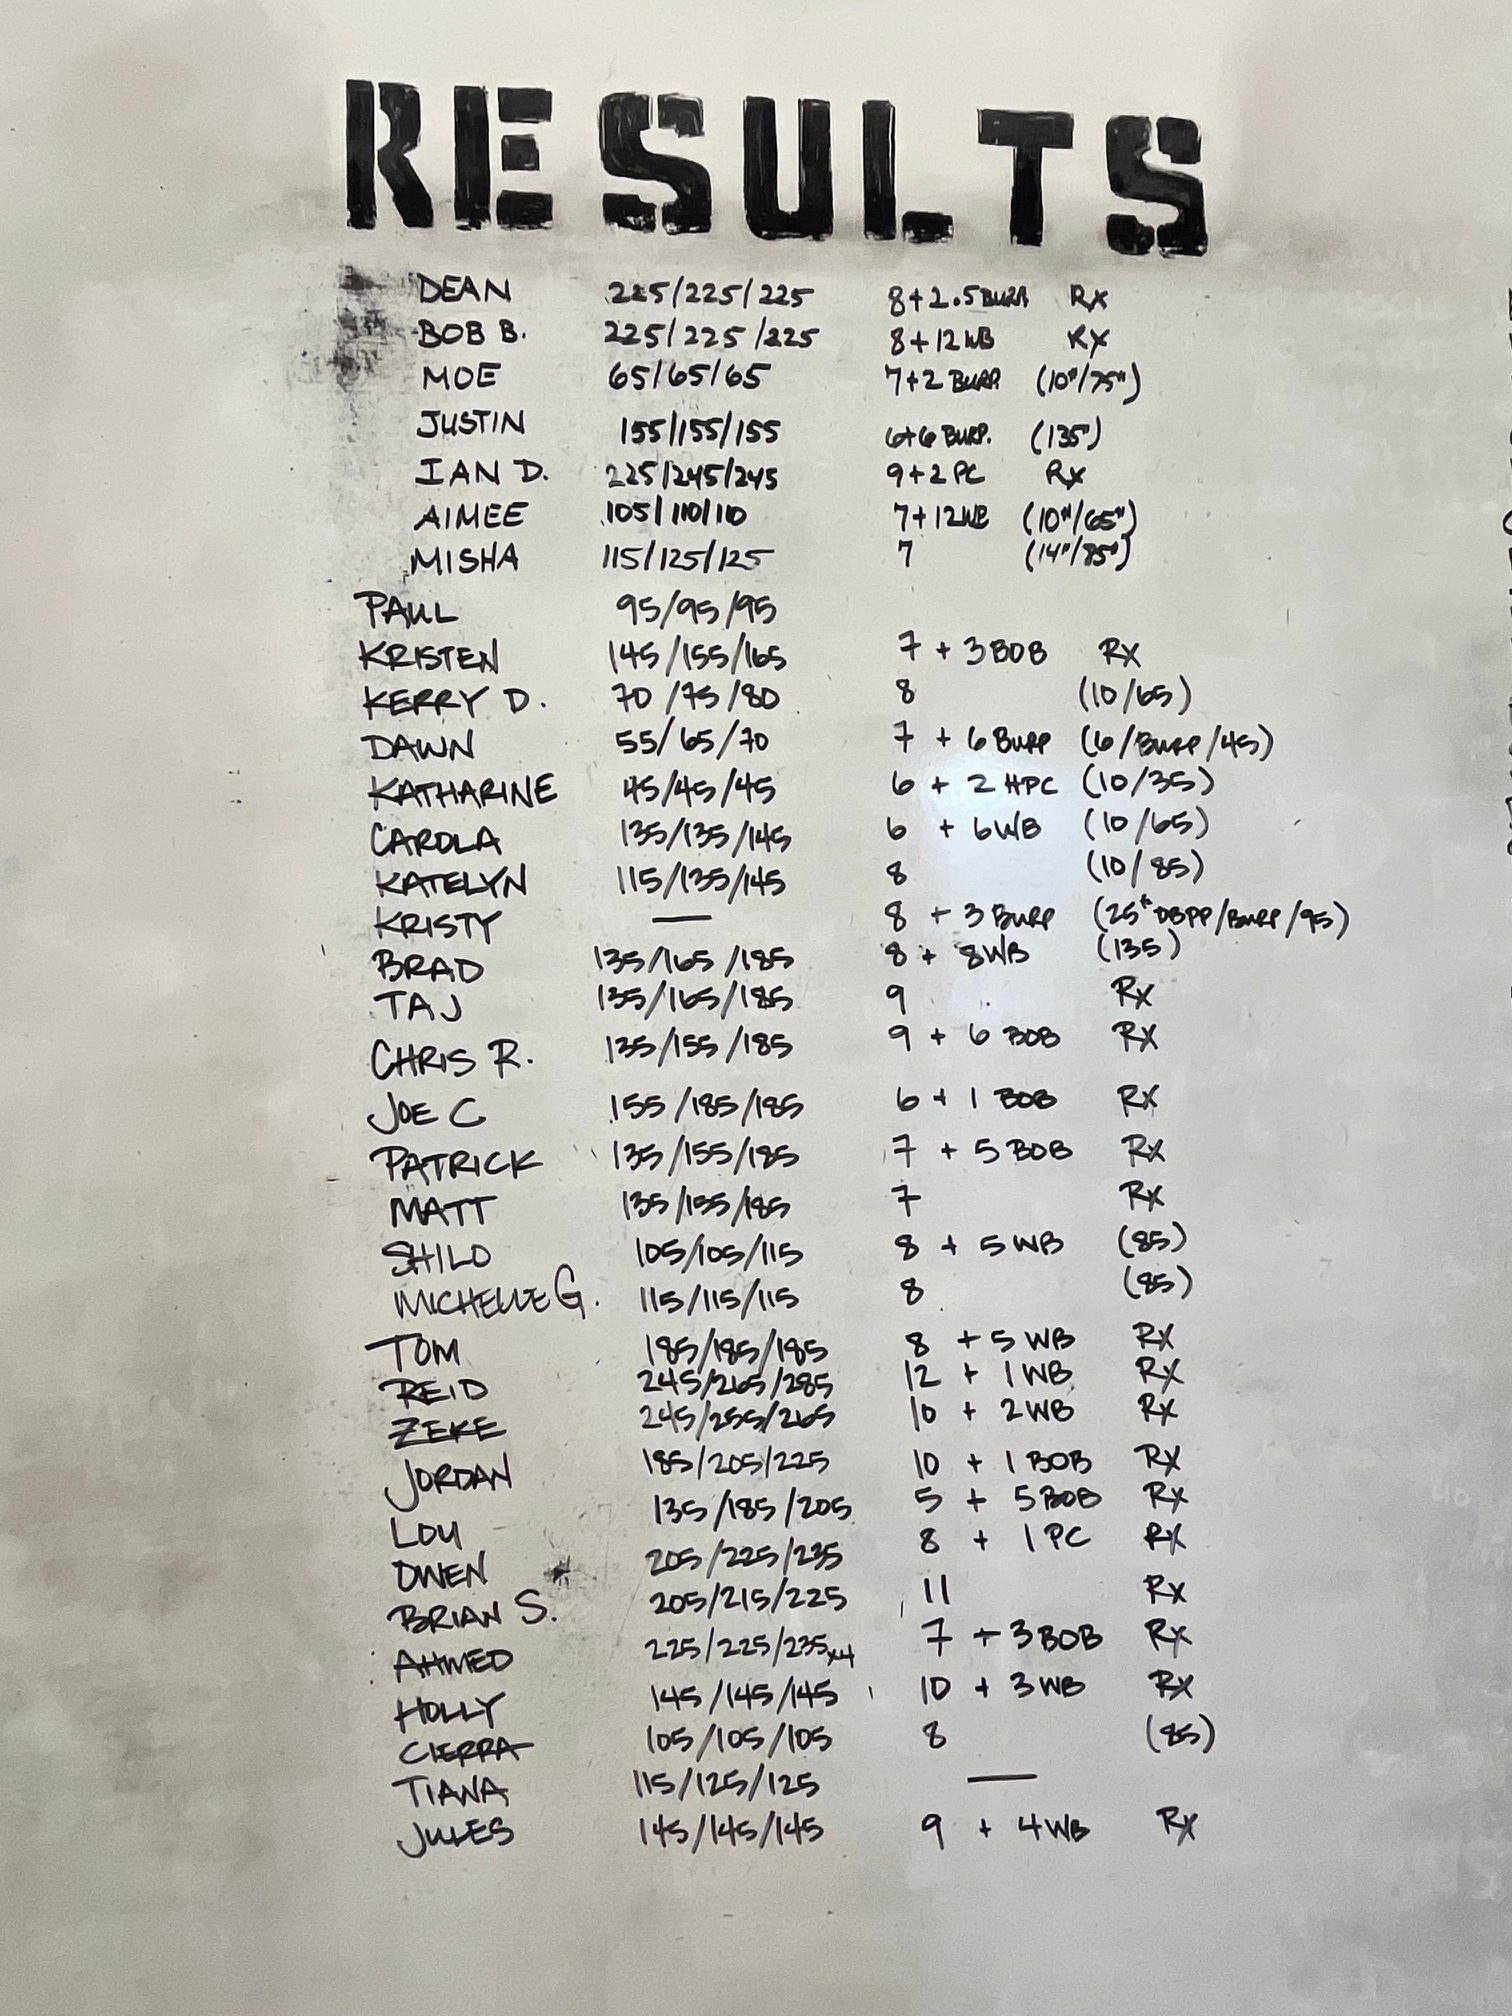 RESULTS
DEAN 225/225/225 8+2.5 BURP Rx
BOB B. 225/225/225 8+12WB Rx
MOE 65/65/65 7+2 BURP. (10"/75")
JUSTIN 155/155/155 6+6 BURP. (135")
IAN D. 225/245/245 9+2PC Rx
AIMEE 105/110/110 7+12WB (10"/65")
MISHA 115/125/125 7 (14"/85")
PAUL 95/95/95
KRISTEN 145/155/165 7 + 3 BOB Rx
KERRY D. 70/75/80 8 (10/65)
DAWN 55/65/70 7 + 6 BURP (6/BURP/45)
KATHARINE 45/45/45 6 + 2 HPC (10/35)
CAROLA 135/135/145 6 + 6WB (10/65)
KATELYN 115/135/145 8 (10/85)
KRISTY — 8 + 3 BURP (25# DBPP/BURP/95)
BRAD 135/165/185 8 + 8WB (135)
TAJ 135/165/185 9 Rx
CHRIS R. 135/155/185 9 + 6 BOB Rx
JOE C 155/185/185 6 + 1 BOB Rx
PATRICK 135/155/185 7 + 5 BOB Rx
MATT 135/155/185 7 Rx
SHILO 105/105/115 8 + 5 WB (85)
MICHELLE G. 115/115/115 8 (85)
TOM 185/185/185 8 + 5 WB Rx
REID 245/265/285 12 + 1 WB Rx
ZEKE 245/255/265 10 + 2WB Rx
JORDAN 185/205/225 10 + 1 BOB Rx
LOU 135/185/205 5 + 5 BOB Rx
OWEN 205/225/235 8 + 1 PC Rx
BRIAN S. 205/215/225 11 Rx
AHMED 225/225/235x4 7 + 3 BOB Rx
HOLLY 145/145/145 10 + 3 WB Rx
CIERRA 105/105/105 8 (85)
TIANA 115/125/125 —
JULES 145/145/145 9 + 4 WB Rx